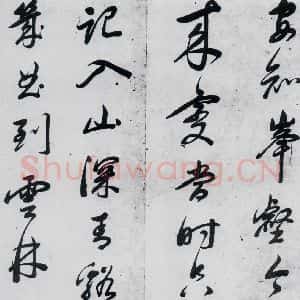 安知峯壑今
來變當時只
記入山深青谿
幾曲到雲林
Shufawang.CN